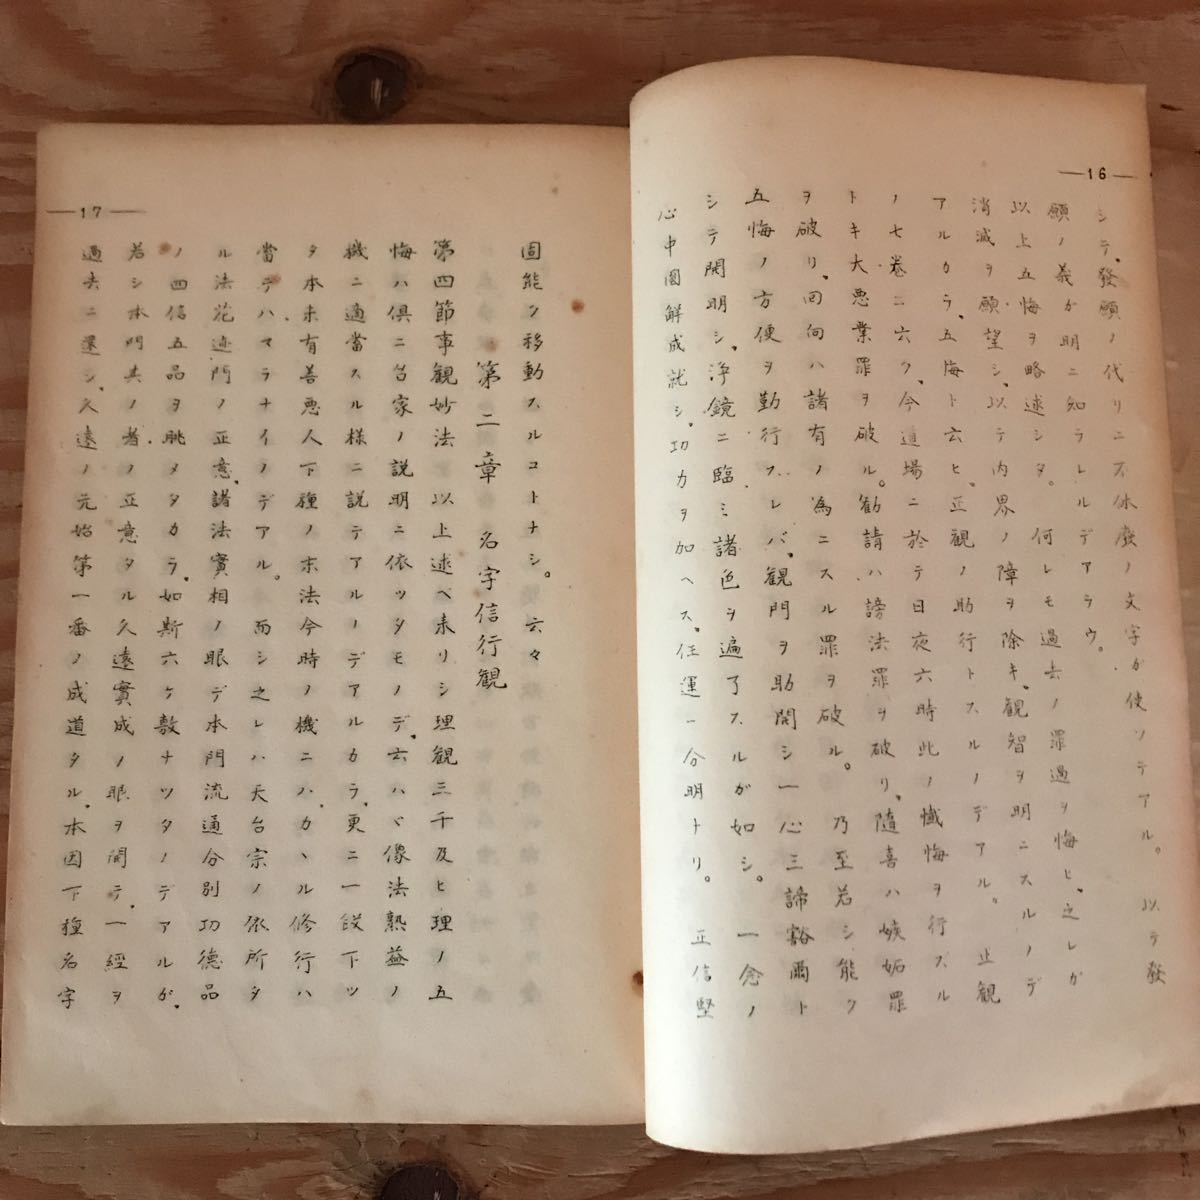 —16—
シテ、發願ノ代リニ不休廢ノ文字ガ使ツテアル。以テ發
願ノ義ガ明ニ知ラレルデアラウ。
以上五悔ヲ略述シタ。何レモ過去ノ罪過ヲ悔ヒ、之レガ
消滅ヲ願望シ、以テ内界ノ障ヲ除キ、観智ヲ明ニスルノデ
アルカラ、五悔ト六ヒ、正観ノ助行トスルノデアル。止観
ノ七卷ニ六ク、今道場ニ於テ日夜六時此ノ懺悔ヲ行ズル
トキ大悪業罪ヲ破ル。勧請ハ謗法罪ヲ破リ、隨喜ハ嫉妬罪
ヲ破リ、回向ハ諸有ノ為ニスル罪ヲ破ル。乃至若シ能ク
五悔ノ方便ヲ勤行スレバ、観門ヲ助開シ一心三諦豁爾ト
シテ開明シ、浄鏡ニ臨ミ諸色ヲ遍了スルガ如シ。一念ノ
心中圓解成就シ、功力ヲ加ヘス、任運ニ分明ナリ。正信堅
—17—
固能ク移動スルコトナシ。
第二章 名字信行観
第四節事観妙法 以上述ベ来リシ理観三千及ヒ理ノ五
悔ハ倶ニ台家ノ説明ニ依ツタモノデ、六ハヾ像法熟益ノ
機ニ適當スル様ニ説テアルノデアルカラ、更ニ一段下ツ
タ本未有善悪人下種ノ末法今時ノ機ニハ、カヽル修行ハ
當テハマラナイノデアル。而シ之レハ天台宗ノ依所タ
ル法花迹門ノ正意、諸法實相ノ眼デ本門流通分別功德品
ノ四信五品ヲ眺メタカラ、如斯六ケ敷ナツタノデアルガ、
若シ本門其ノ者ノ正意タル久遠實成ノ眼ヲ開テ、一經ヲ
過去ニ還シ、久遠ノ元始第一番ノ成道タル、本因下種名字